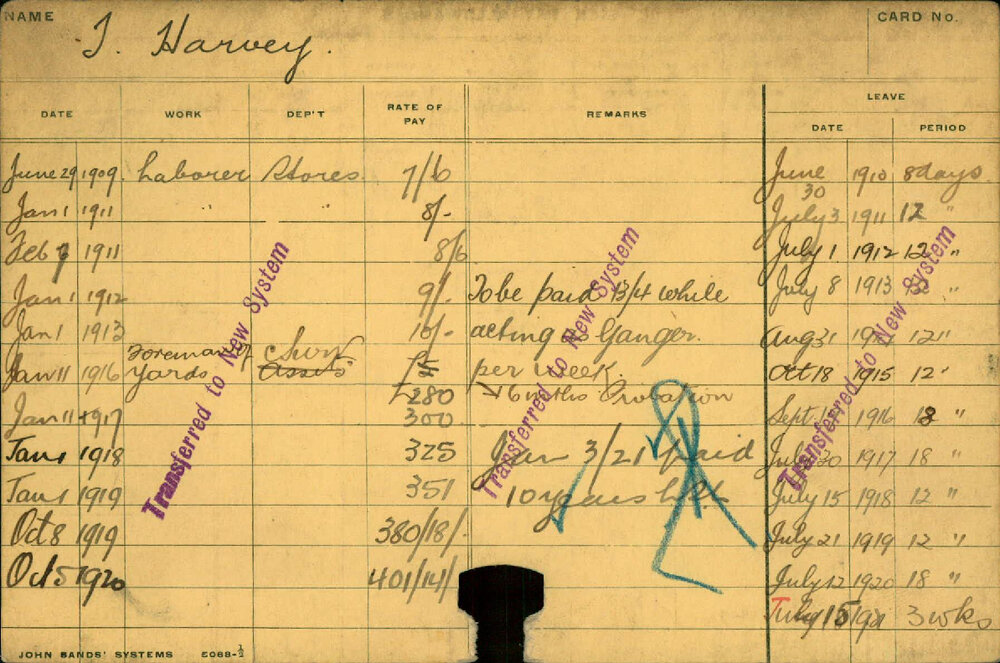 NAME T. Harvey. CARD No.
LEAVE
DATE WORK DEP'T RATE OF PAY REMARKS DATE PERIOD
June 29 1909. Laborer Stores 7/6 June 30 1910 8 days
Jan 1 1911 " " 8/- July 3 1911 12 "
Feb 1911 8/6 July 1 1912 12 "
Jan 1 1912 9/- To be paid 13/4 while July 8 1913
Jan 1 1913 10/- acting as Ganger. Aug 31 12 "
Jan 11 1916 Foreman of Yards Assets £5 per week. Oct 18 1915 12 "
£280 6 mths Probation
Jan 11 1917 300 Sept 1916 18 "
Jan 1 1918 325 Jan 3/21 Paid July 30 1917 18 "
Jan 1 1919 351 10 years July 15 1918 12 "
Oct 8 1919 380/18/- July 21 1919 12 "
Oct 5 1920 401/14/- July 12 1920 18 "
July 15 1921 3 wks
Transferred to New System
Transferred to New System
Transferred to New System
JOHN SANDS' SYSTEMS 5068-½